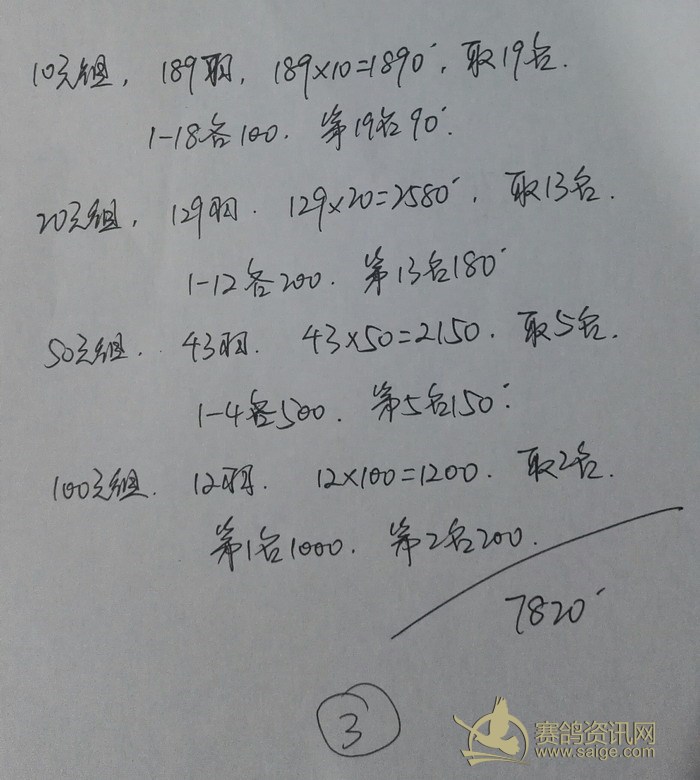 10元组, 189羽, 189×10=1890′, 取19名.
1-18各100. 第19名90′.
20元组, 129羽. 129×20=2580′, 取13名.
1-12各200. 第13名180′
50元组. 43羽. 43×50=2150. 取5名.
1-4各500. 第5名150′.
100元组. 12羽. 12×100=1200. 取2名.
第1名1000. 第2名200.
7820′
3
赛鸽资讯网
www.saige.com